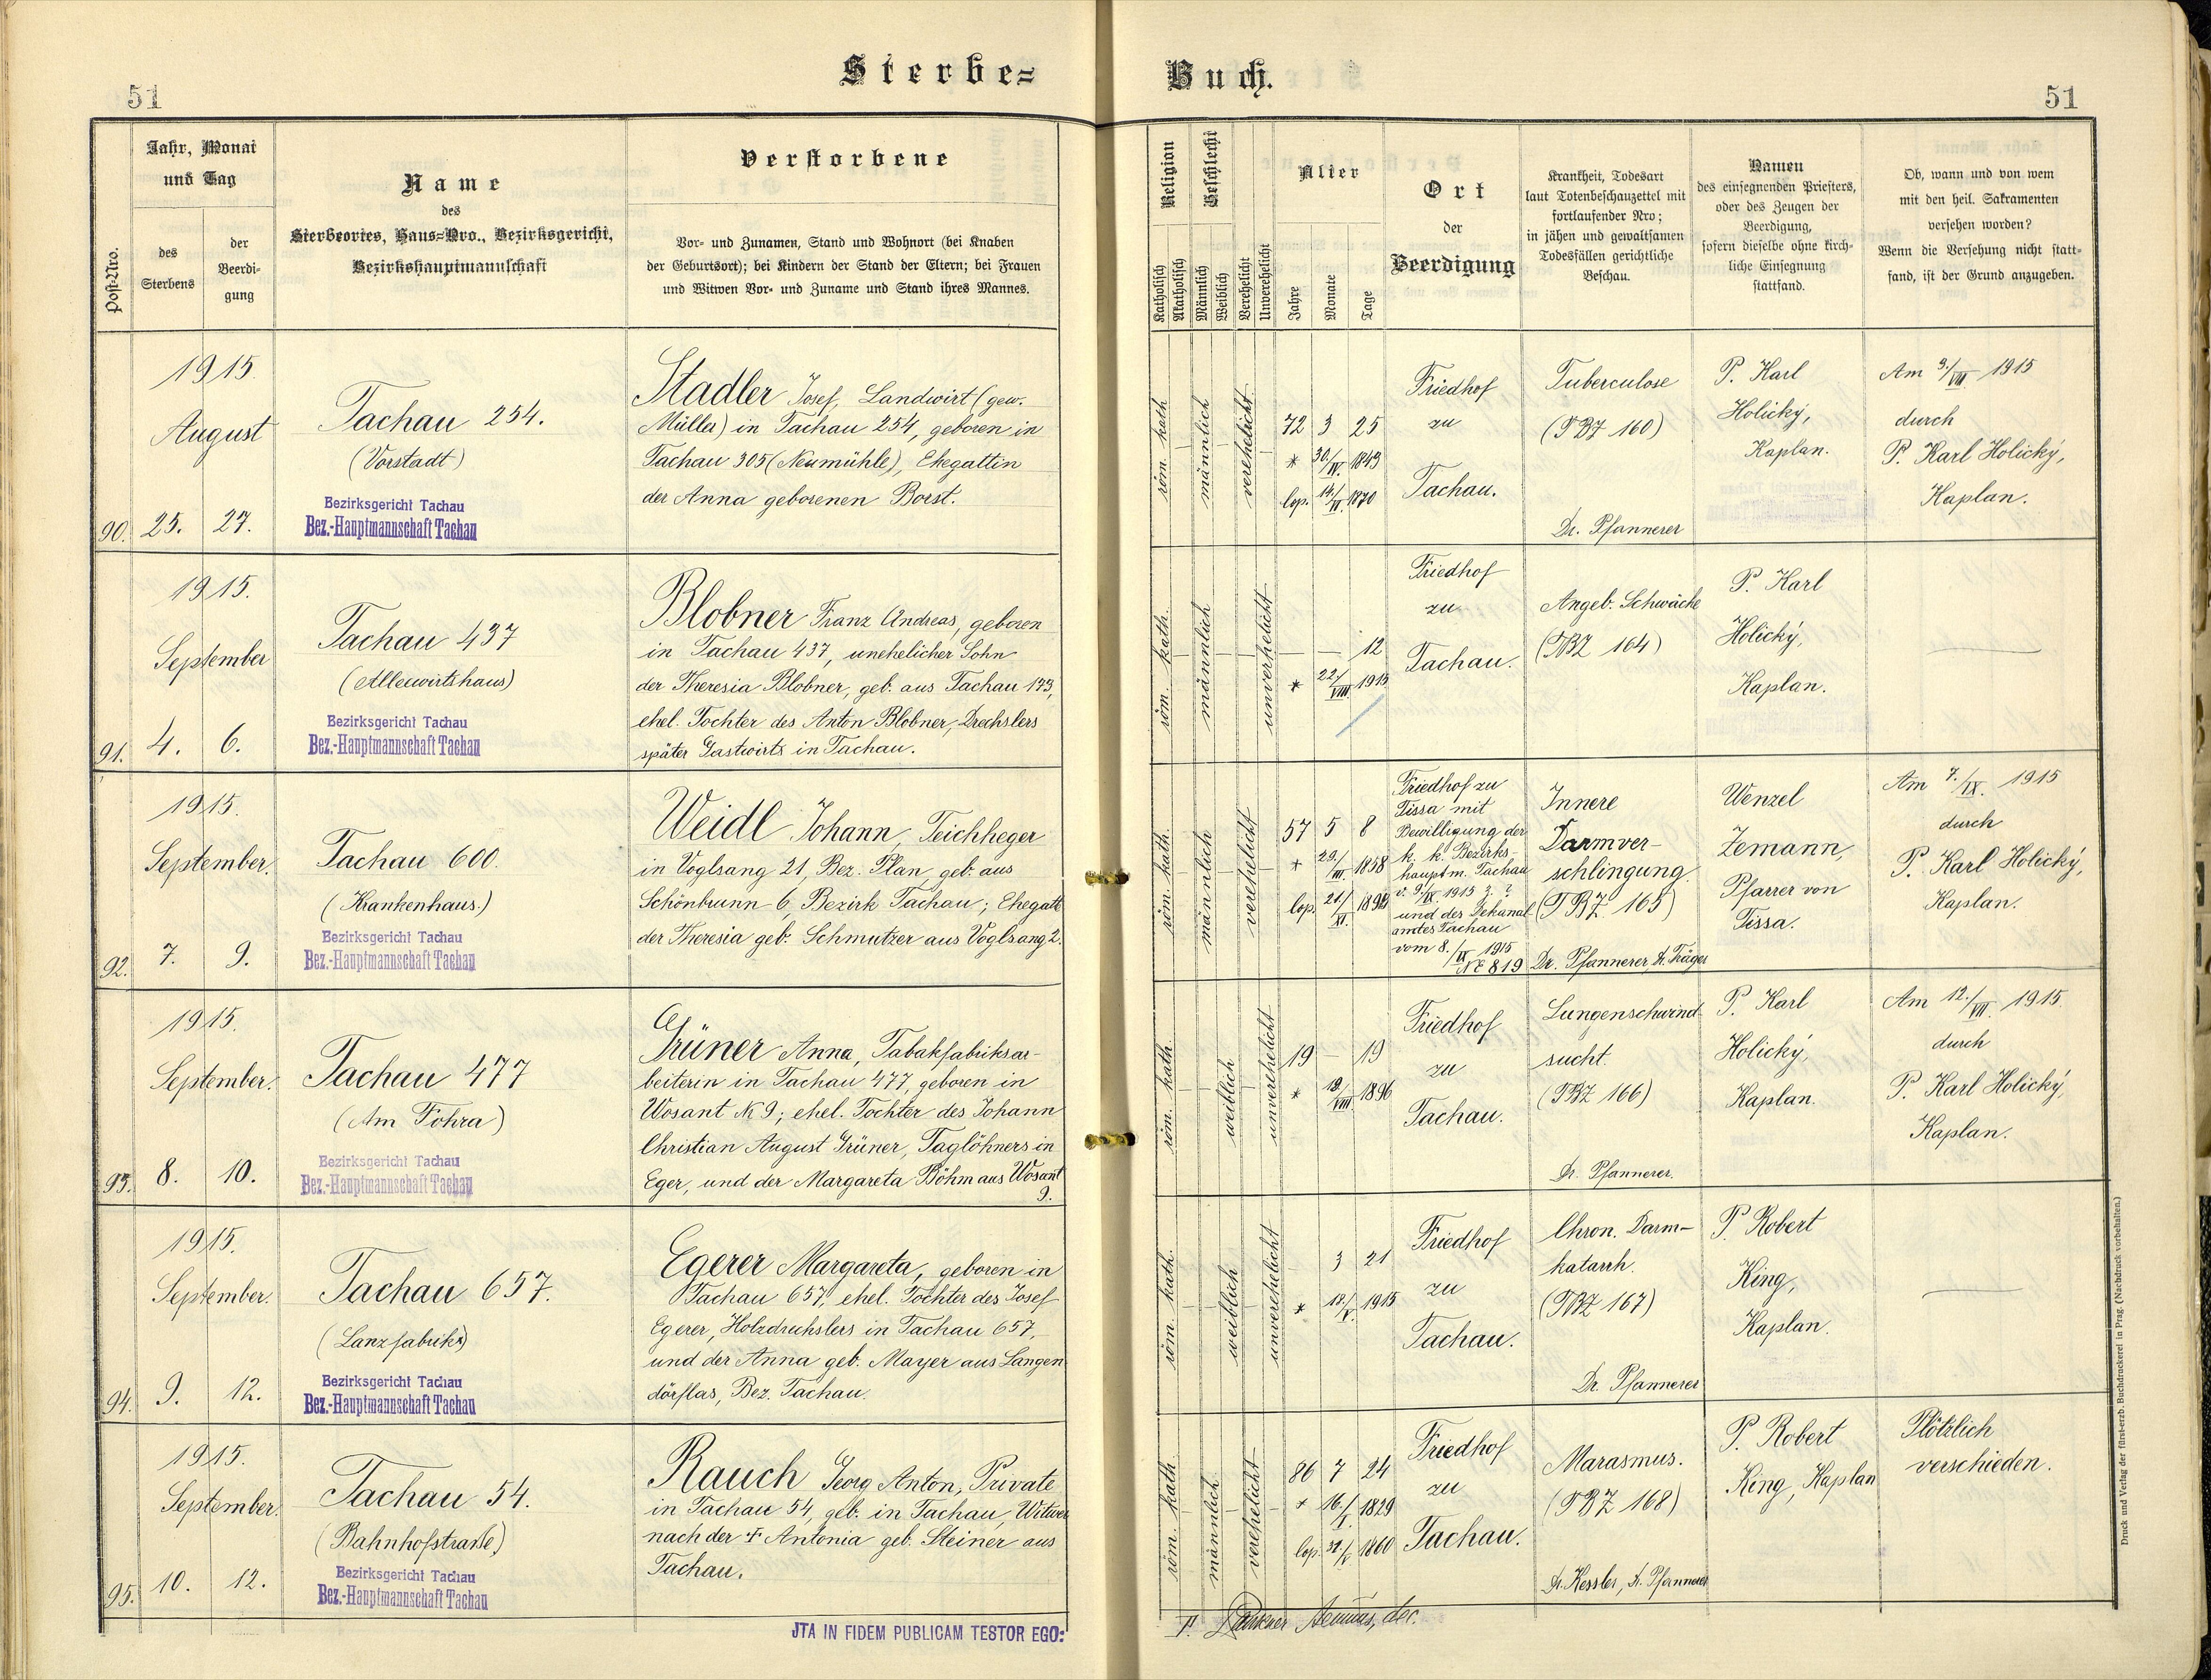 Sterbe=
Buch.
51
51
Post-Nro.
Jahr, Monat
und Tag
des
Sterbens
der
Beerdi-
gung
Name
des
Sterbeortes, Haus=Nro., Bezirksgericht,
Bezirkshauptmannschaft
Verstorbene
Vor- und Zunamen, Stand und Wohnort (bei Knaben
der Geburtsort); bei Kindern der Stand der Eltern; bei Frauen
und Witwen Vor- und Zuname und Stand ihres Mannes.
Religion
Katholisch
Akatholisch
Geschlecht
Männlich
Weiblich
Verehelicht
Unverehelicht
Alter
Jahre
Monate
Tage
Ort
der
Beerdigung
Krankheit, Todesart
laut Totenbeschauzettel mit
fortlaufender Nro;
in jähen und gewaltsamen
Todesfällen gerichtliche
Beschau.
Namen
des einsegnenden Priesters,
oder des Zeugen der
Beerdigung,
sofern dieselbe ohne kirch-
liche Einsegnung
stattfand.
Ob, wann und von wem
mit den heil. Sakramenten
versehen worden?
Wenn die Versehung nicht statt-
fand, ist der Grund anzugeben.
1915.
August
90. 25. 27.
Tachau 254.
(Vorstadt)
Bezirksgericht Tachau
Bez.-Hauptmannschaft Tachau
Stadler Josef, Landwirt (gew.
Müller) in Tachau 254, geboren in
Tachau 305 (Neumühle), Ehegattin
der Anna geborenen Borst.
röm. kath
männlich
verehelicht
72 3 25
* 30./IV. 1843
cop. 14./II. 1870
Friedhof
zu
Tachau.
Tuberculose
(TBZ 160)
Dr. Pfannerer
P. Karl
Holický,
Kaplan.
Am 9./VIII 1915
durch
P. Karl Holický,
Kaplan.
1915.
September
91. 4. 6.
Tachau 437
(Alleewirtshaus)
Bezirksgericht Tachau
Bez.-Hauptmannschaft Tachau
Blobner Franz Andreas, geboren
in Tachau 437, unehelicher Sohn
der Theresia Blobner, geb. aus Tachau 173,
ehel. Tochter des Anton Blobner, Drechslers
später Gastwirts in Tachau.
röm. kath.
männlich
unverehelicht
12
* 22./VIII. 1915
Friedhof
zu
Tachau.
Angeb. Schwäche
(TBZ 164)
P. Karl
Holický,
Kaplan.
1915.
September.
92. 7. 9.
Tachau 600.
(Krankenhaus.)
Bezirksgericht Tachau
Bez.-Hauptmannschaft Tachau
Weidl Johann, Teichheger
in Voglsang 21, Bez. Plan, geb. aus
Schönbrunn 6, Bezirk Tachau; Ehegatte
der Theresia geb. Schmutzer aus Voglsang 2.
röm. kath.
männlich
verehelicht
57 5 8
* 29./III 1858
cop. 21./XI.
Friedhof zu
Tissa mit
Bewilligung der
k. k. Bezirks-
hauptm. Tachau
v. 9./IX. 1915 z. ?
und des Dekanal
amtes Tachau
vom 8./IX 1915
NE 819
Innere
Darmver-
schlingung.
(TBZ 165)
Dr. Pfannerer, Dr. Träger
Wenzel
Zemann,
Pfarrer von
Tissa.
Am 7./IX. 1915
durch
P. Karl Holický,
Kaplan.
1915.
September.
93. 8. 10.
Tachau 477
(Am Fohra)
Bezirksgericht Tachau
Bez.-Hauptmannschaft Tachau
Grüner Anna, Tabakfabriksar-
beiterin in Tachau 477, geboren in
Wosant № 9; ehel. Tochter des Johann
Christian August Grüner, Taglöhners in
Eger, und der Margareta Böhm aus Wosant
9.
röm. kath
weiblich
unverehelicht
19 — 19
* /VIII 1896
Friedhof
zu
Tachau.
Lungenschwind-
sucht.
(TBZ 166)
Dr. Pfannerer.
P. Karl
Holický,
Kaplan.
Am 12./VII. 1915.
durch
P. Karl Holický,
Kaplan.
1915.
September.
94. 9. 12.
Tachau 657.
(Lanzfabrik)
Bezirksgericht Tachau
Bez.-Hauptmannschaft Tachau
Egerer Margareta, geboren in
Tachau 657, ehel. Tochter des Josef
Egerer, Holzdrechslers in Tachau 657,
und der Anna geb. Mayer aus Langen
dörflas, Bez. Tachau.
röm. kath.
weiblich
unverehelicht
3 21
* 18./V. 1915
Friedhof
zu
Tachau.
Chron. Darm-
katarrh.
(TBZ 167)
Dr. Pfannerer
P. Robert
King,
Kaplan.
1915.
September.
95. 10. 12.
Tachau 54.
(Bahnhofstraße)
Bezirksgericht Tachau
Bez.-Hauptmannschaft Tachau
Rauch Georg Anton, Private
in Tachau 54, geb. in Tachau, Witwer
nach der † Antonia geb. Steiner aus
Tachau.
röm. kath
männlich
verehelicht
86 7 24
* 16./I. 1829
cop. 1860
Friedhof
zu
Tachau.
Marasmus.
(TBZ 168)
Dr. Kessler, Dr. Pfannerer
P. Robert
King, Kaplan
Plötzlich
verschieden.
JTA IN FIDEM PUBLICAM TESTOR EGO:
Druck und Verlag der fürst-erzb. Buchdruckerei in Prag. (Nachdruck vorbehalten.)